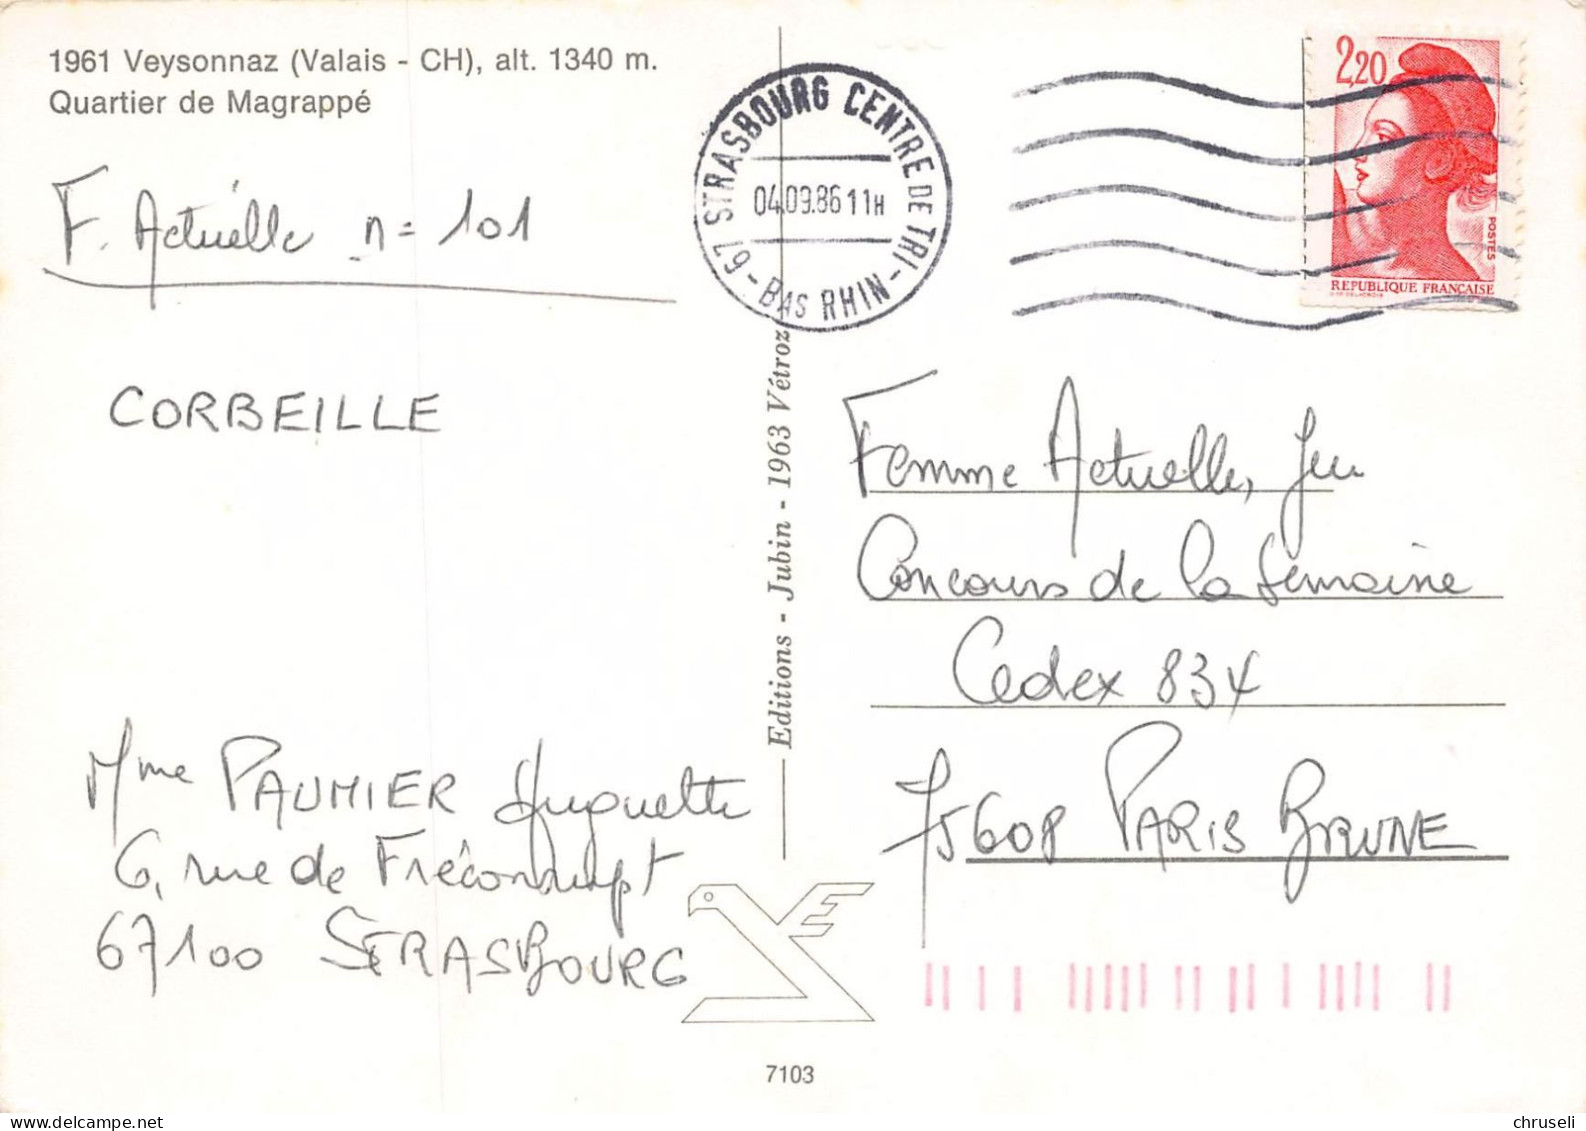 1961 Veysonnaz (Valais - CH), alt. 1340 m.
Quartier de Magrappé
F. Actuelle n= 101
CORBEILLE
Mme PAUMIER Huguette
6, rue de
67100 STRASBOURG
67 STRASBOURG CENTRE DE TRI - BAS RHIN -
04.09.86 11H
2,20
POSTES
REPUBLIQUE FRANÇAISE
Editions - Jubin - 1963 Vétroz
Femme Actuelle, Jeu
Concours de la Semaine
Cedex 834
75608 PARIS BRUNE
7103
delcampe.net
chruseli